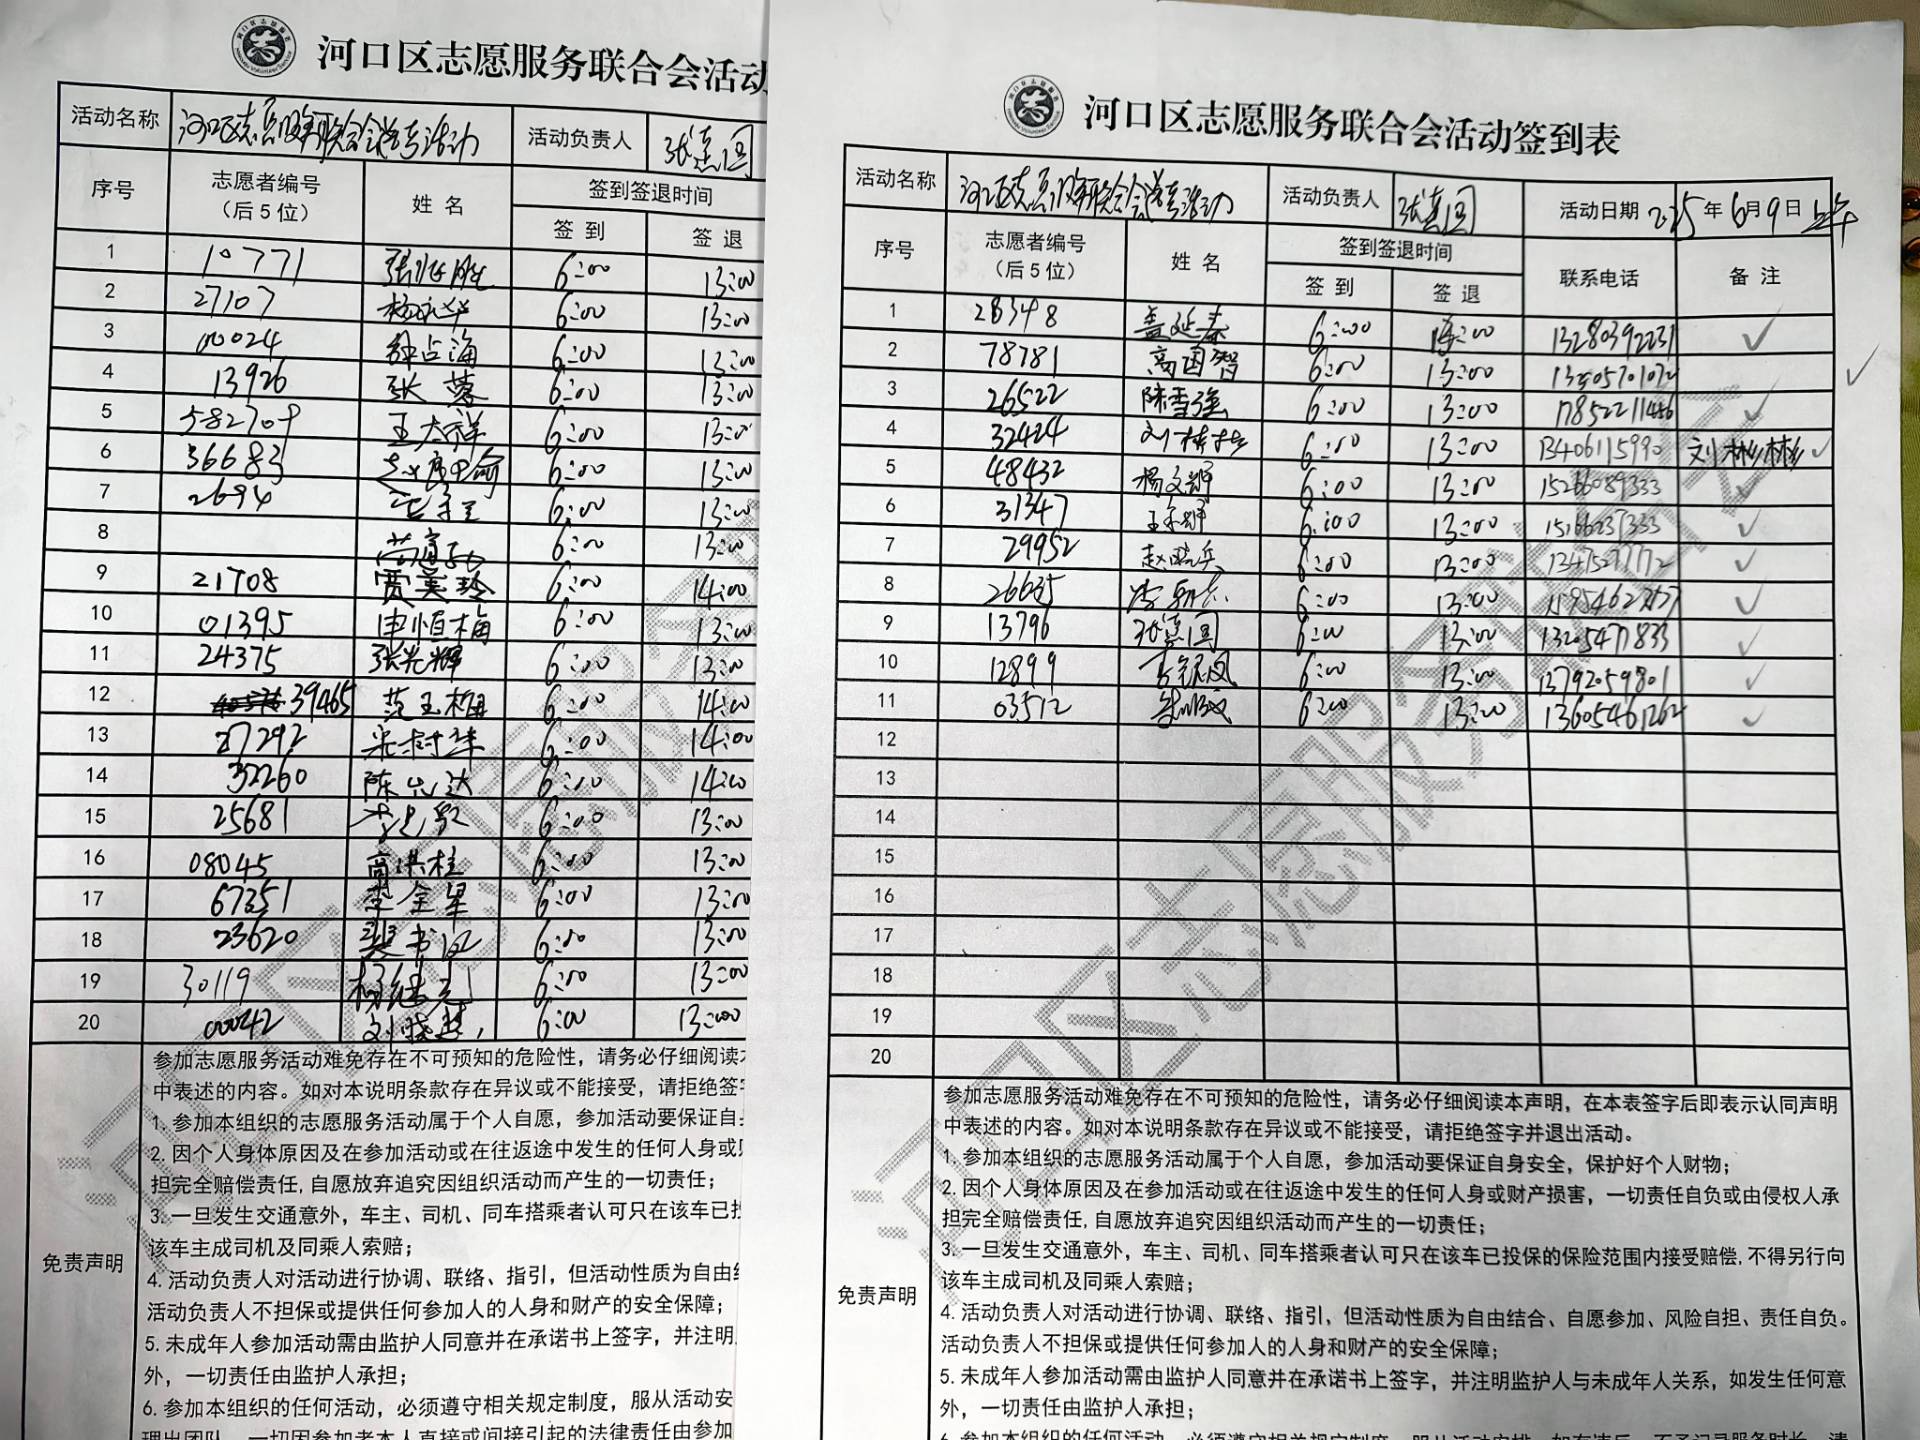 河口区志愿服务联合会活动
活动名称 河口区志愿服务联合会高考活动 活动负责人 张嘉国
序号 志愿者编号（后5位） 姓名 签到签退时间
签到 签退
1 10771 6:00 13:00
2 27107 杨永华 6:00 13:00
3 00024 钟占海 6:00 13:00
4 13926 张蓉 6:00 13:00
5 王大祥 6:00 13:00
6 36683 6:00 13:00
7 2694 6:00 13:00
8 6:00 13:00
9 21708 贾美玲 6:00 14:00
10 01395 申恒梅 6:00 13:00
11 24375 张光辉 6:00 13:00
12 39465 范玉梅 6:00 14:00
13 27292 6:00 14:00
14 32260 陈 达 6:00 14:00
15 25681 6:00 13:00
16 08045 高洪柱 6:00 13:00
17 67351 李金星 6:00 13:00
18 23620 裴书 6:00 13:00
19 30119 6:00 13:00
20 00042 刘晓 6:00 13:00
免责声明
参加志愿服务活动难免存在不可预知的危险性，请务必仔细阅读
中表述的内容。如对本说明条款存在异议或不能接受，请拒绝签字
1. 参加本组织的志愿服务活动属于个人自愿，参加活动要保证自身
2. 因个人身体原因及在参加活动或在往返途中发生的任何人身或
担完全赔偿责任,自愿放弃追究因组织活动而产生的一切责任；
3. 一旦发生交通意外，车主、司机、同车搭乘者认可只在该车已投
该车主成司机及同乘人索赔；
4. 活动负责人对活动进行协调、联络、指引，但活动性质为自由
活动负责人不担保或提供任何参加人的人身和财产的安全保障；
5. 未成年人参加活动需由监护人同意并在承诺书上签字，并注明
外，一切责任由监护人承担；
6. 参加本组织的任何活动，必须遵守相关规定制度，服从活动安
理出团队，一切因参加者本人直接或间接引起的法律责任由参加
河口区志愿服务联合会活动签到表
活动名称 河口区志愿服务联合会高考活动 活动负责人 张嘉国 活动日期 2025年6月9日 上午
序号 志愿者编号（后5位） 姓名 签到签退时间 联系电话 备注
签到 签退
1 28348 盖延春 6:00 13:00 13280392231 ✓
2 78781 高国智 6:00 13:00 ✓
3 26522 陈雪强 6:00 13:00 ✓
4 32424 刘彬彬 6:00 13:00 13406115990 刘彬彬 ✓
5 48432 杨文 6:00 13:00 ✓
6 31347 6:00 13:00 15166237333 ✓
7 29952 赵晓兵 6:00 13:00 13475277772 ✓
8 26635 6:00 13:00 ✓
9 13796 张嘉国 6:00 13:00 13205471833 ✓
10 12899 6:00 13:00 13792059801 ✓
11 03512 6:00 13:00 13605461262 ✓
12
13
14
15
16
17
18
19
20
免责声明
参加志愿服务活动难免存在不可预知的危险性，请务必仔细阅读本声明，在本表签字后即表示认同声明
中表述的内容。如对本说明条款存在异议或不能接受，请拒绝签字并退出活动。
1. 参加本组织的志愿服务活动属于个人自愿，参加活动要保证自身安全，保护好个人财物；
2. 因个人身体原因及在参加活动或在往返途中发生的任何人身或财产损害，一切责任自负或由侵权人承
担完全赔偿责任,自愿放弃追究因组织活动而产生的一切责任；
3. 一旦发生交通意外，车主、司机、同车搭乘者认可只在该车已投保的保险范围内接受赔偿,不得另行向
该车主成司机及同乘人索赔；
4. 活动负责人对活动进行协调、联络、指引，但活动性质为自由结合、自愿参加、风险自担、责任自负。
活动负责人不担保或提供任何参加人的人身和财产的安全保障；
5. 未成年人参加活动需由监护人同意并在承诺书上签字，并注明监护人与未成年人关系，如发生任何意
外，一切责任由监护人承担；